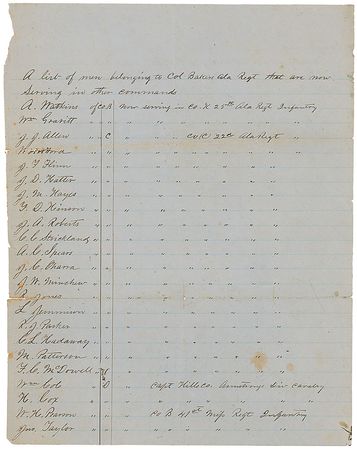 A list of men belonging to Col Bakers Ala Regt that are now
Serving in other commands
A. Watkins of Co B now serving in Co. K 25th Ala Regt Infantry
Wm Gravitt " " " " " " " " " "
J. J. Allen " C " " " Co K 22d Ala Regt "
" " " " " " " " " "
J. T. Flinn " " " " " " " " " "
J. D. Hatter " " " " " " " " " "
J. M. Hayes " " " " " " " " " "
T. D. Hinson " " " " " " " " " "
J. A. Roberts " " " " " " " " " "
C. C. Strickland " " " " " " " " " "
A. C. Spears " " " " " " " " " "
J. C. Oharra " " " " " " " " " "
J. W. Minchew " " " " " " " " " "
Jones " " " " " " " " " "
L. Jernigan " " " " " " " " " "
Parker " " " " " " " " " "
C. L. Hudaway " " " " " " " " " "
M. Patterson " " " " " " " " " "
F. C. McDowell " " " " " " " "
Wm Cole " D Capt Hills Co. Armstrongs Div Cavalry
H. Cox " " " " " " "
W. H. Pearson " " Co B 41st Miss Regt Infantry
Jno. Taylor " " " " " " "